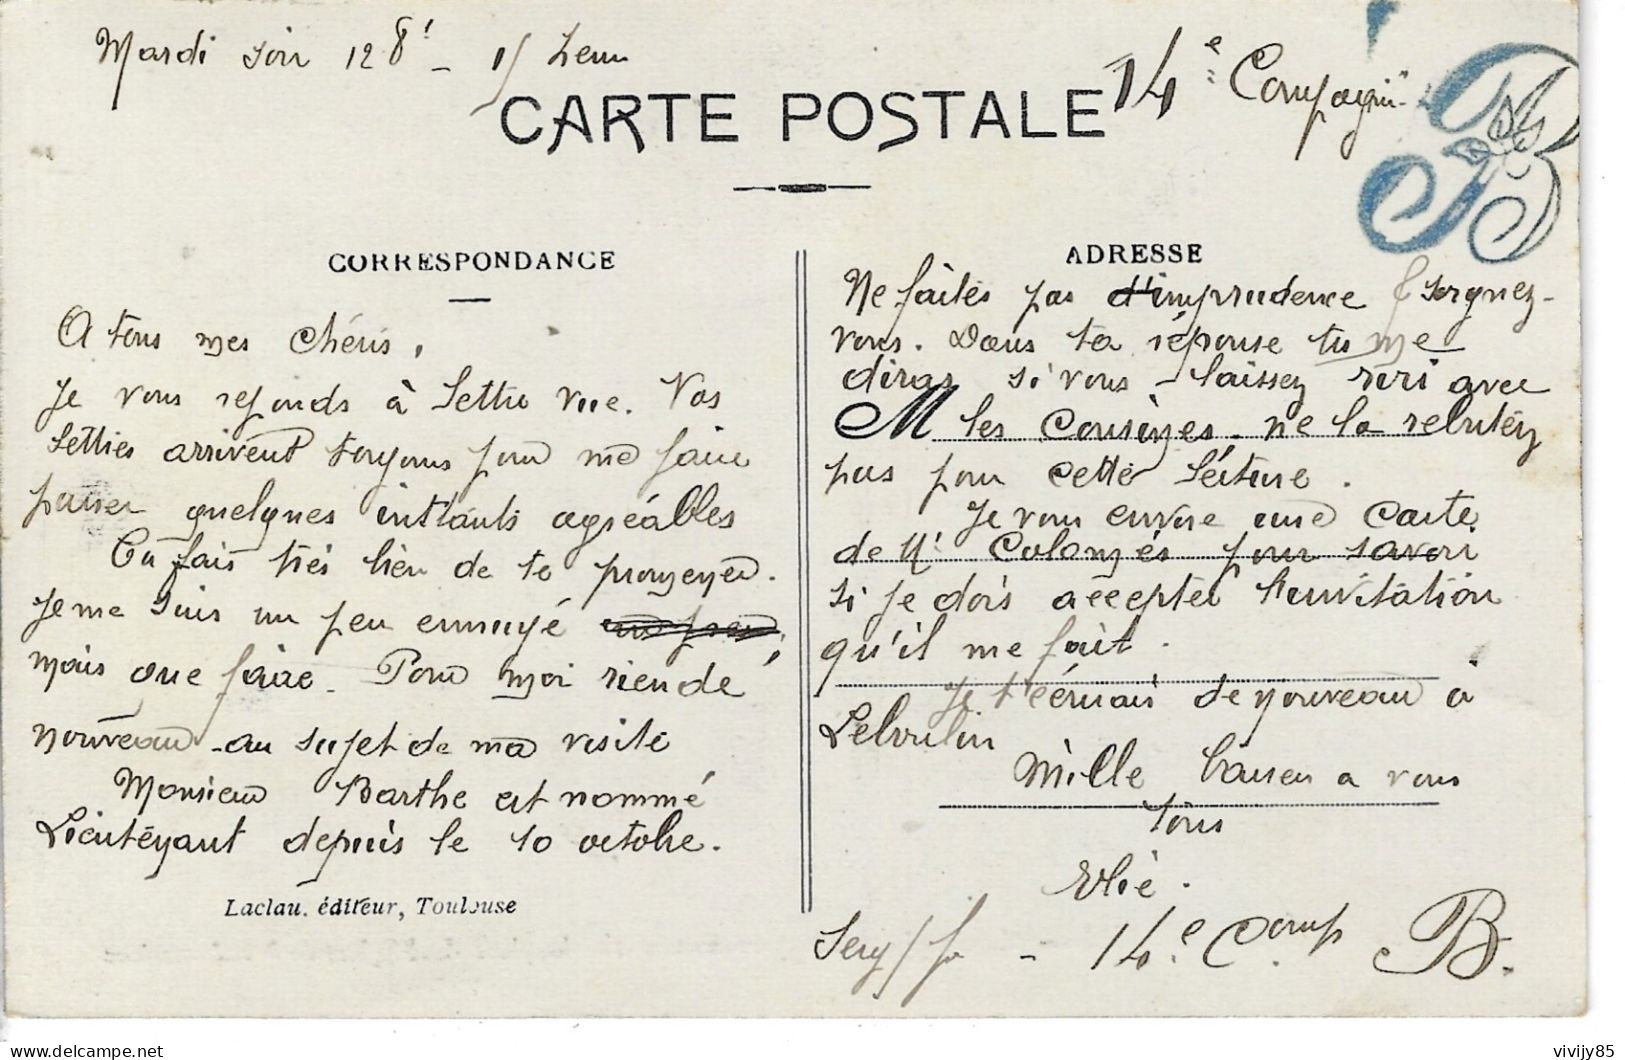 Mardi soir 12 8
14e Compagnie
CARTE POSTALE
CORRESPONDANCE
A tous mes chéris,
Je vous reponds à lettre vue. Vos
lettres arrivent toujours pour me faire
passer quelques instants agréables
Tu fais très bien de te promener.
Je me suis un peu ennuyé
mais que faire. Pour moi rien de
nouveau au sujet de ma visite
Monsieur Barthe est nommé
Lieutenant depuis le 10 octobre.
Laclau, éditeur, Toulouse
ADRESSE
Ne faites pas d'imprudence & soignez-
vous. Dans ta réponse tu me
diras si vous laissez riri avec
M les cousines. ne la rebutez
pas pour cette lecture.
Je vous envoie une carte
de Mr Colomiès pour savoir
si je dois accepter l'invitation
qu'il me fait.
Je t'écrivais de nouveau à
Leboulin
Mille baisers a vous
tous
Elie.
14e Comp B.
vivijy85